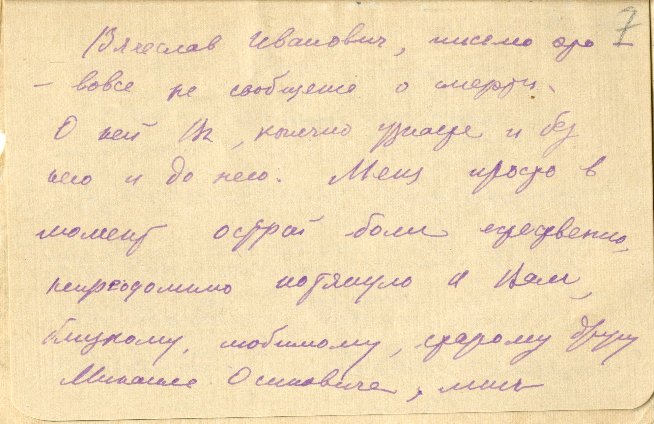 7
Вячеслав Иванович, письмо это
– вовсе не сообщение о смерти.
О ней Вы, конечно узнаете и без
него и до него. Меня просто в
момент острой боли
непреодолимо потянуло к Вам,
близкому, любимому, старому другу
Михаила Осиповича, мне